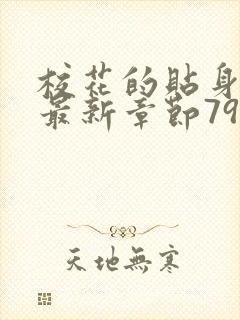 校花的貼身
最新章節79
天地無寒